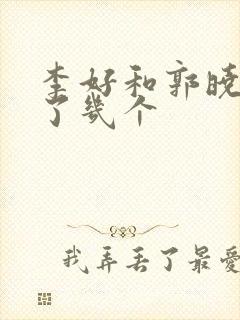 李好和郭晓
了几个
我弄丢了最爱